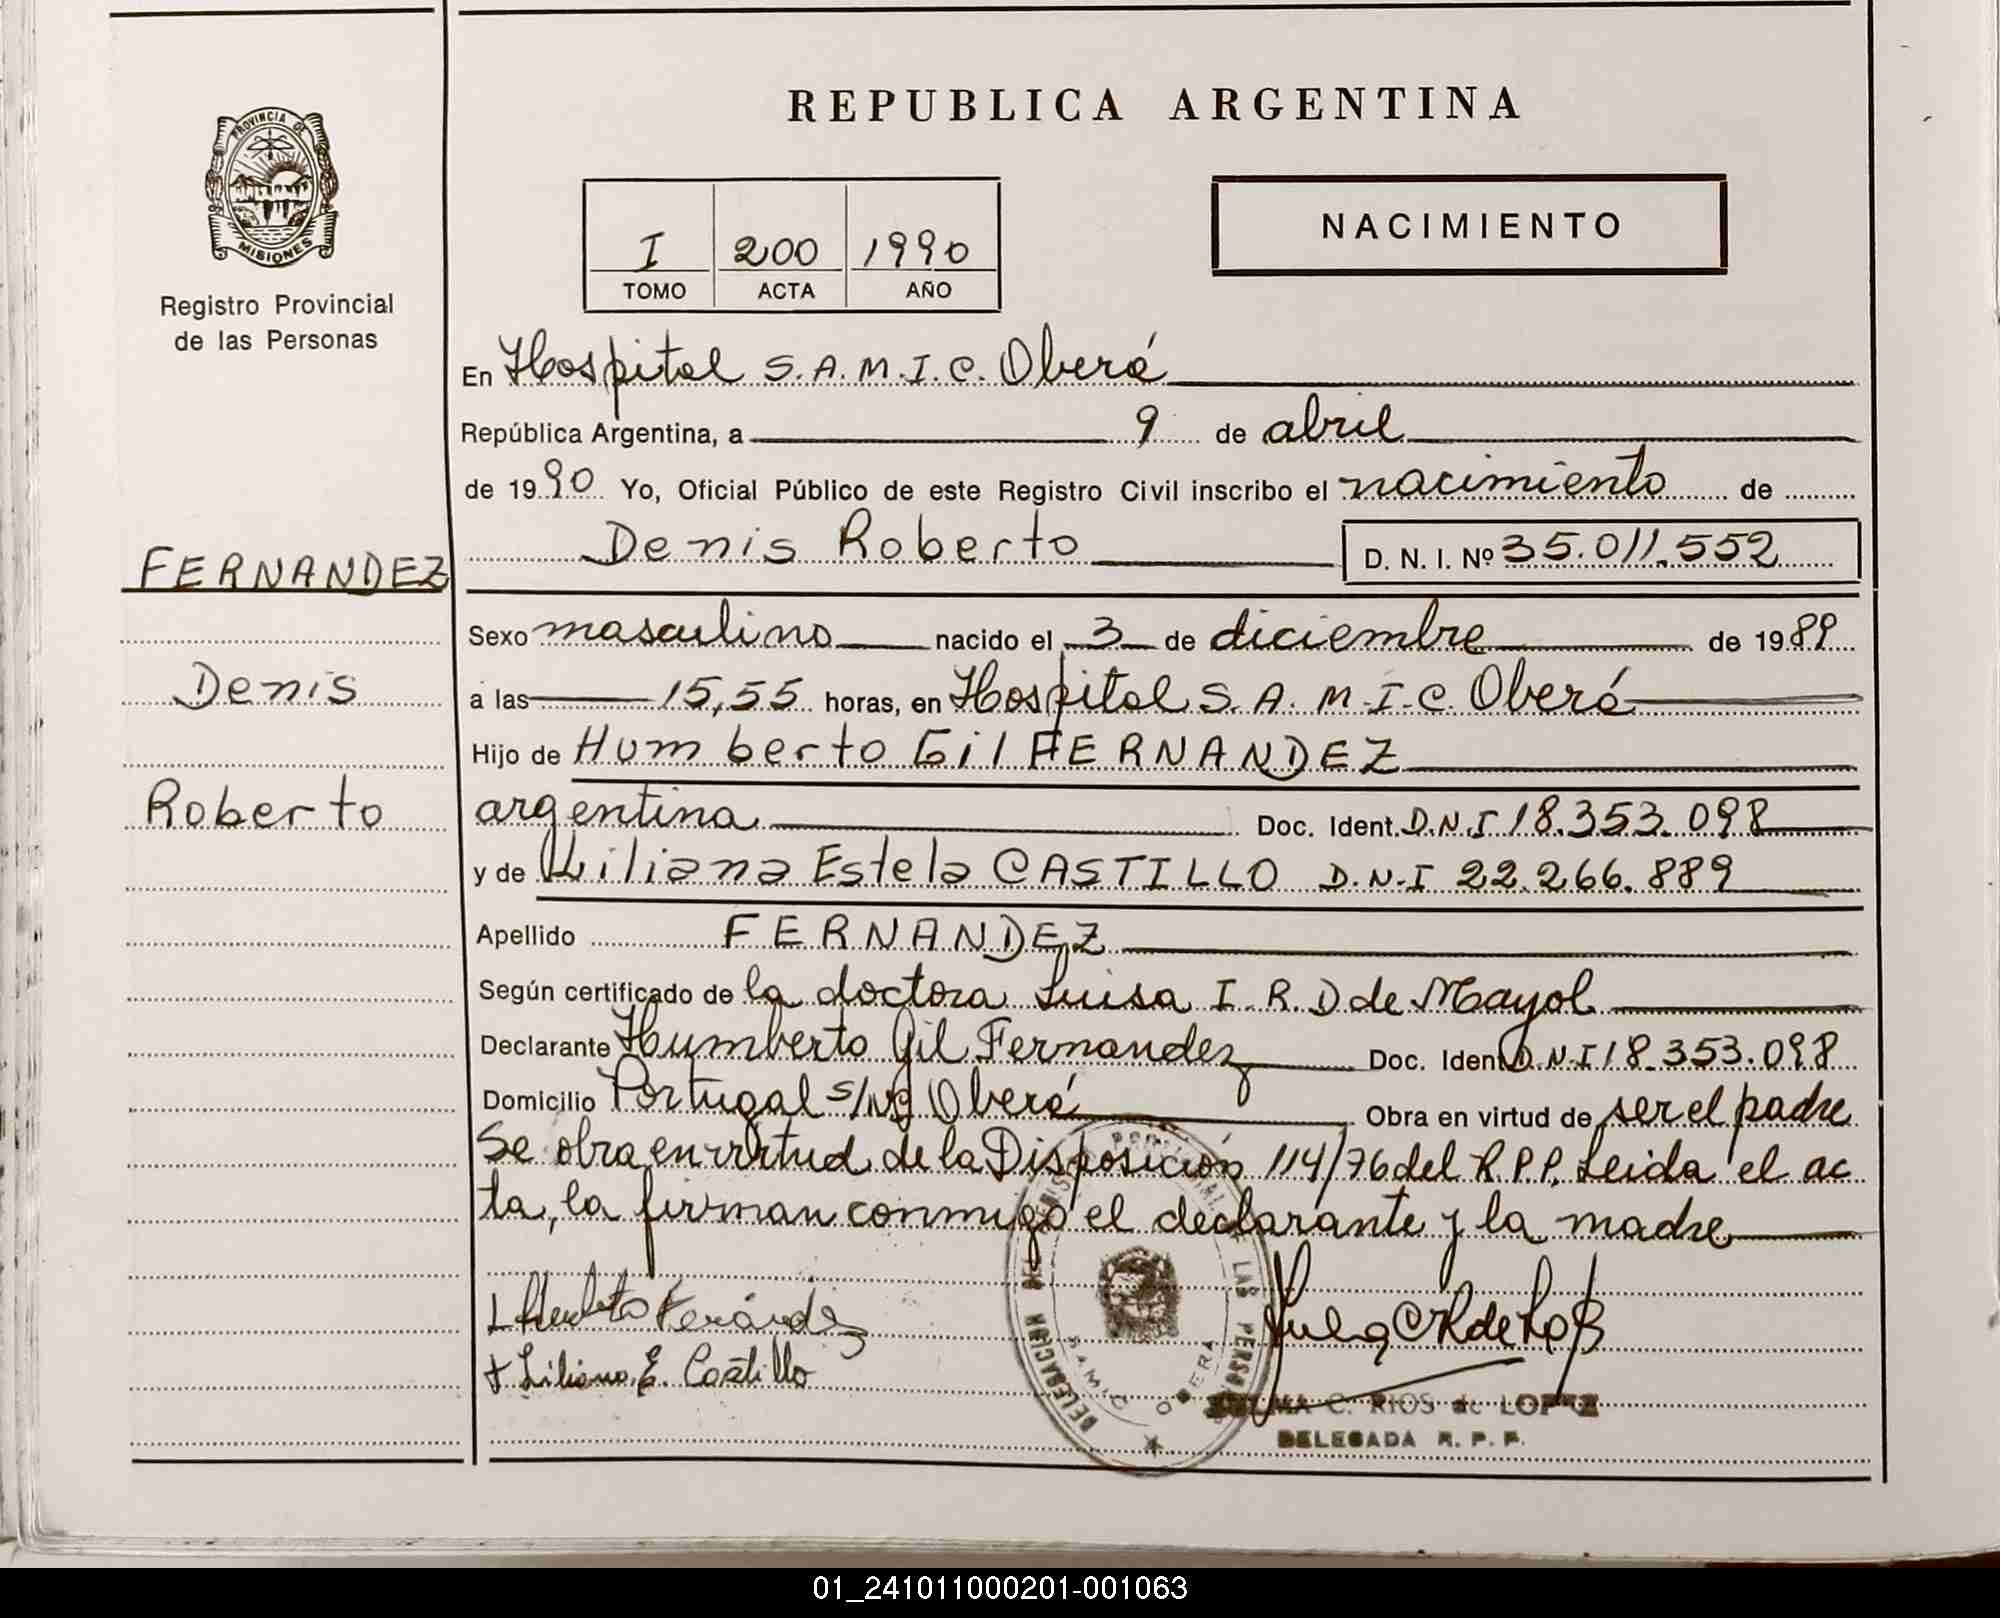 REPUBLICA ARGENTINA
PROVINCIA DE
MISIONES
Registro Provincial
de las Personas
NACIMIENTO
I 200 1990
TOMO ACTA AÑO
En Hospital S.A.M.I.C. Oberá
República Argentina, a 9 de abril
de 1990 Yo, Oficial Público de este Registro Civil inscribo el nacimiento de
Denis Roberto D. N. I. Nº 35.011.552
FERNANDEZ
Denis
Roberto
Sexo masculino nacido el 3 de diciembre de 1989
a las 15,55 horas, en Hospital S.A.M.I.C. Oberá
Hijo de Humberto Gil FERNANDEZ
argentina Doc. Ident. D.N.I 18.353.098
y de Liliana Estela CASTILLO D.N.I 22.266.889
Apellido FERNANDEZ
Según certificado de la doctora Luisa I.R.D de Mayol
Declarante Humberto Gil Fernandez Doc. Ident. D.N.I 18.353.098
Domicilio Portugal s/Nº Oberá Obra en virtud de ser el padre
Se obra en virtud de la Disposición 114/76 del R.P.P. Leida el ac
ta, la firman conmigo el declarante y la madre
Liliana E. Castillo
DELEGACION LAS PERSO
SAMIC OBERA
C. RIOS de LOPEZ
DELEGADA R. P. P.
01_241011000201-001063